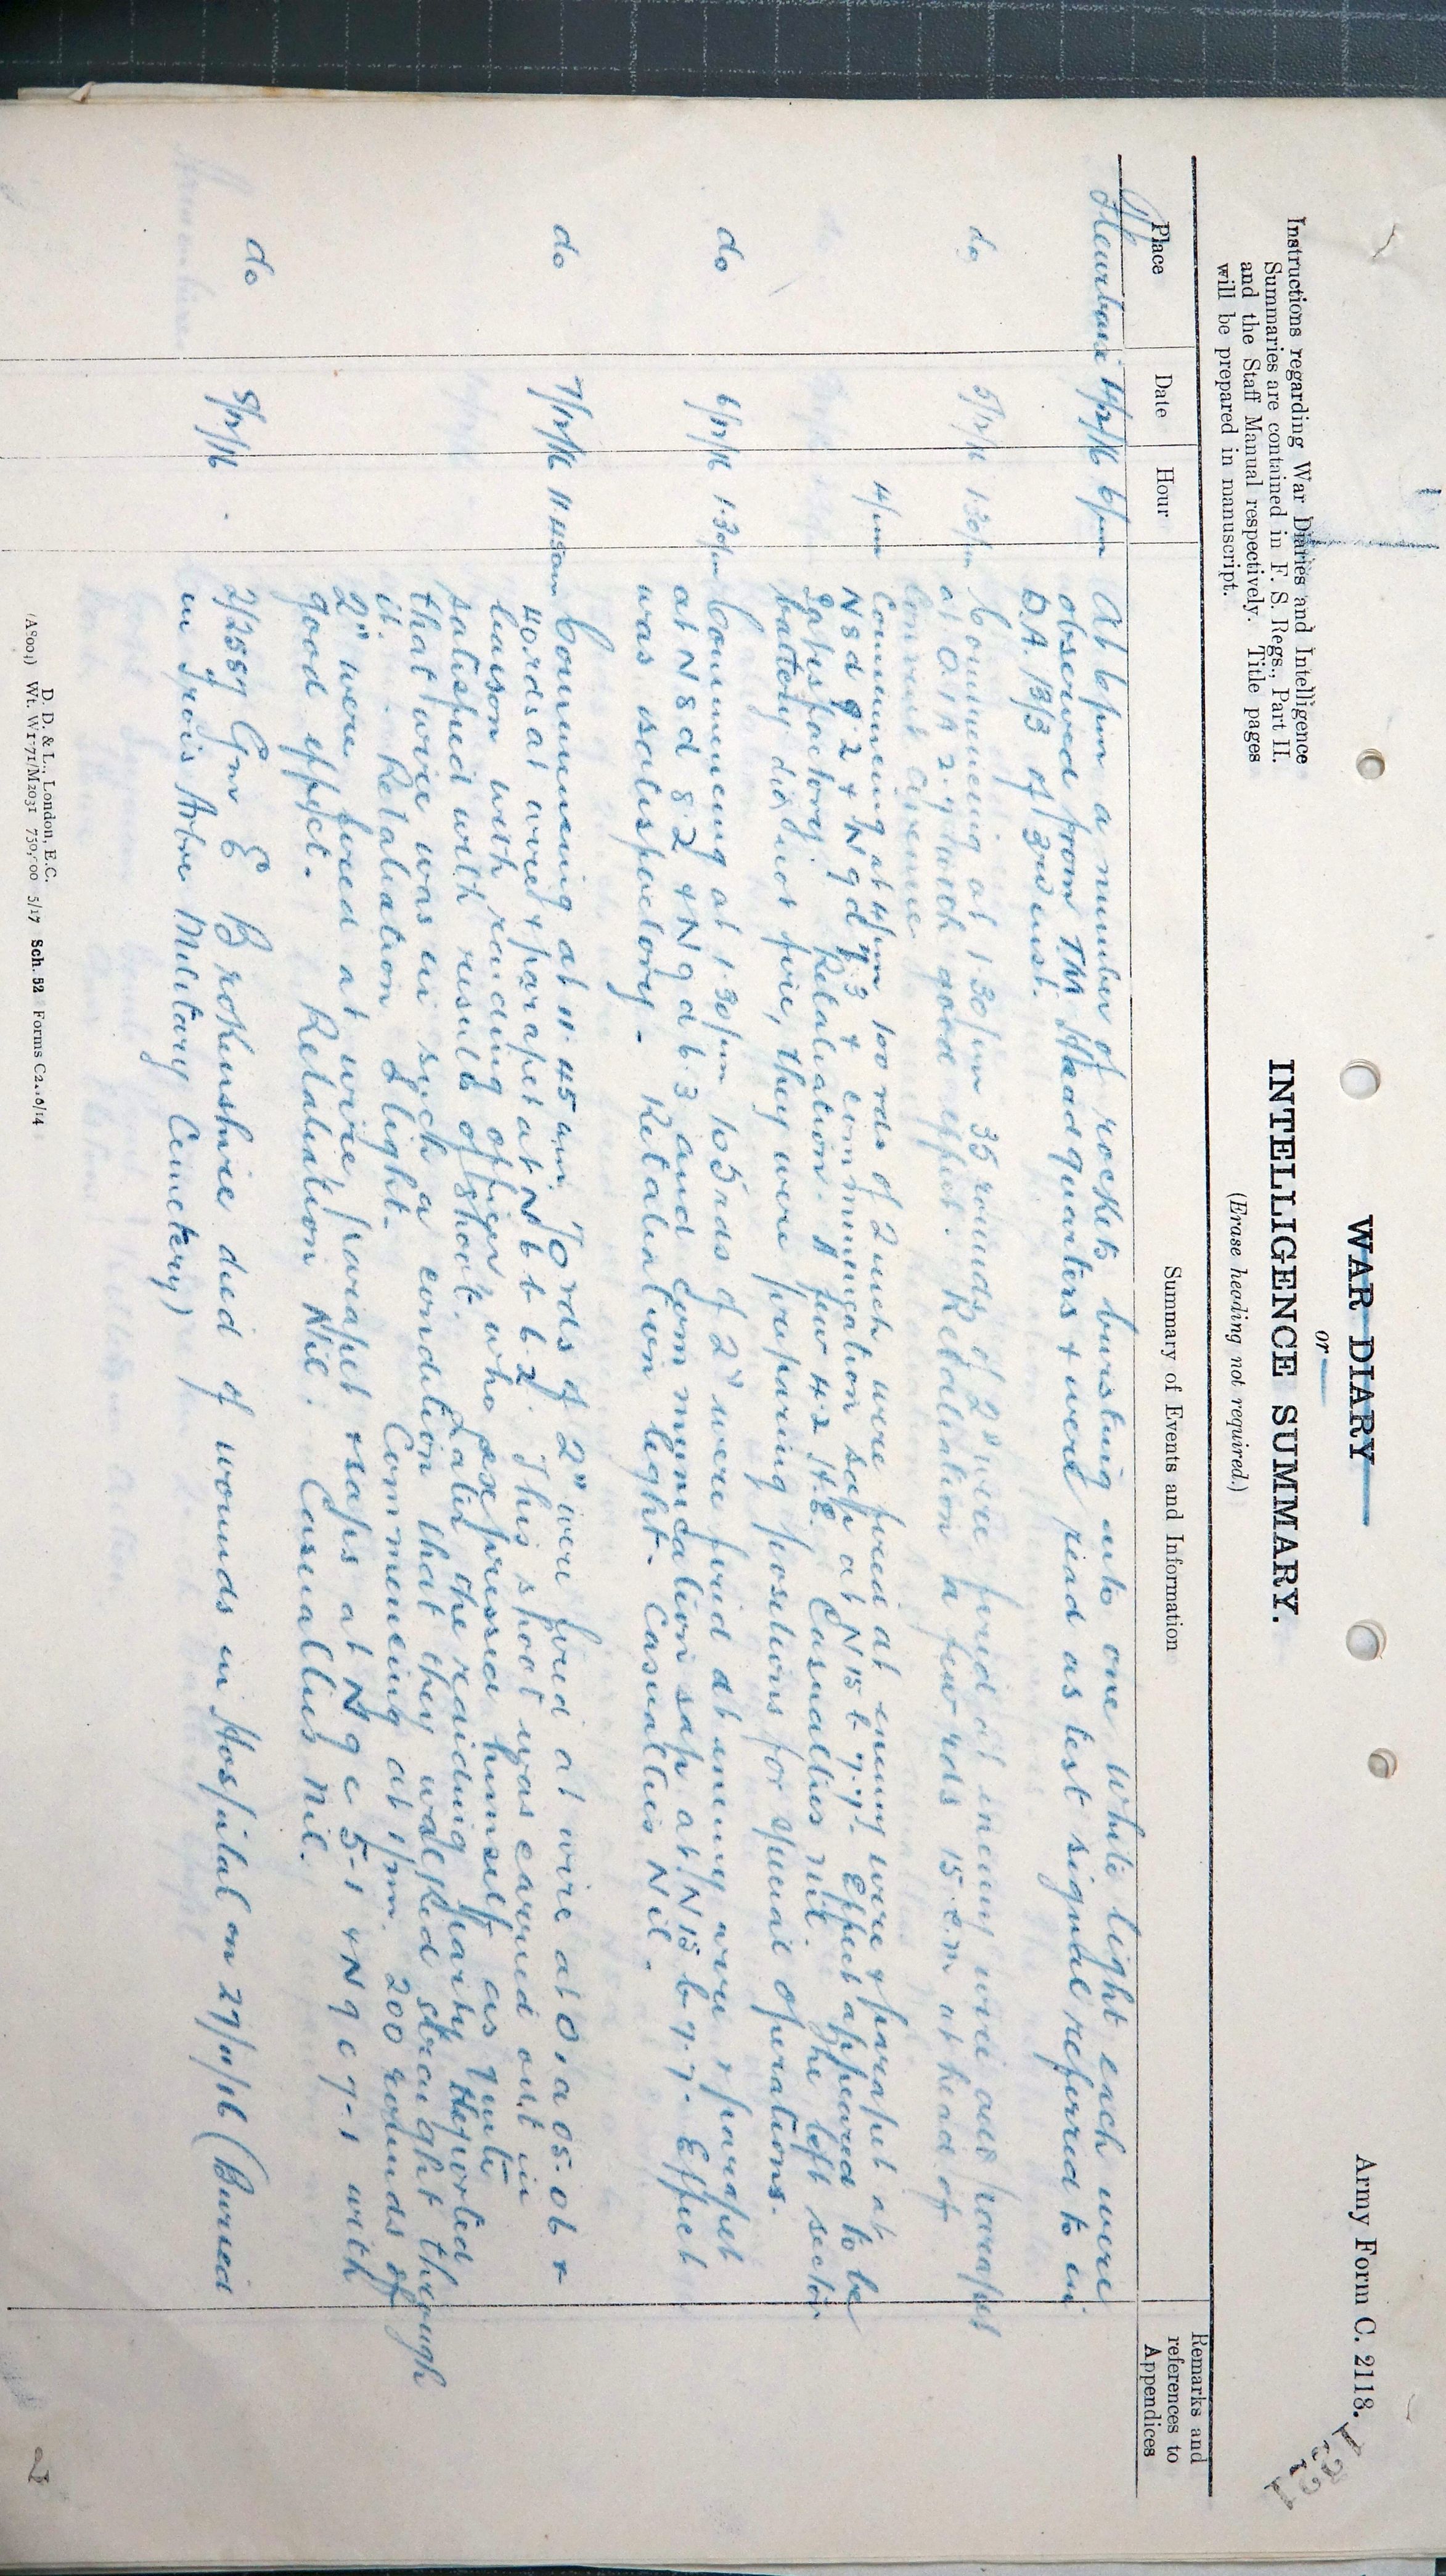 Army Form C. 2118.
WAR DIARY
or
INTELLIGENCE SUMMARY.
(Erase heading not required.)
Instructions regarding War Diaries and Intelligence
Summaries are contained in F. S. Regs., Part II.
and the Staff Manual respectively. Title pages
will be prepared in manuscript.
Place Date Hour Summary of Events and Information Remarks and references to Appendices
Fleurbaix 4/12/16 6pm At 6pm a number of rockets bursting into one white light each were
observed from TM Headquarters & were read as test signal referred to in
D.A. 13/3 of 3rd inst.
do 5/12/16 1.30pm Commencing at 1.30pm 35 rounds of 2" were fired at enemy wire and parapet
at with good effect. Retaliation a few rds 15 c.m at head of
avenue
4pm Commencing at 4pm 100 rds of 2 inch were fired at enemy wire & parapet at
N 8 d 9 2 & N 9 d 7.3 & communication sap at N 15 b 7.7. Effect appeared to be
satisfactory. Retaliation. A few 4.2 H.E. Casualties nil. The left sector
battery did not fire, they were preparing positions for special operations.
do 6/12/16 1.30pm Commencing at 1.30pm 105 rds of 2" were fired at enemy wire & parapet
at N 8 d 8 2 & N 9 d 6.3 and communication sap at N 15 b 7.7. Effect
was satisfactory. Retaliation light. Casualties Nil.
do 7/12/16 11.45am Commencing at 11.45 am 70 rds of 2" were fired at wire at O 1 a 05.06 &
40 rds at wire & parapet at N 6 b 6.2. This shoot was carried out in
liaison with raiding officer who expressed himself as quite
satisfied with results of shoot. Later the raiding party reported
that wire was in such a condition that they walked straight through
it. Retaliation slight. Commencing at 1pm. 200 rounds of
2" were fired at wire, parapet & saps at N 9 c 5-1 & N 9 c 7-1 with
good effect. Retaliation Nil. Casualties Nil.
do 8/12/16 . 2/2589 Gnr E Brokenshire died of wounds in Hospital on 27/11/16 (Buried
in Trois Arbre Military Cemetery)
D. D. & L., London, E.C.
(A8004) Wt. W1771/M2031 750,000 5/17 Sch. 52 Forms C2118/14
2